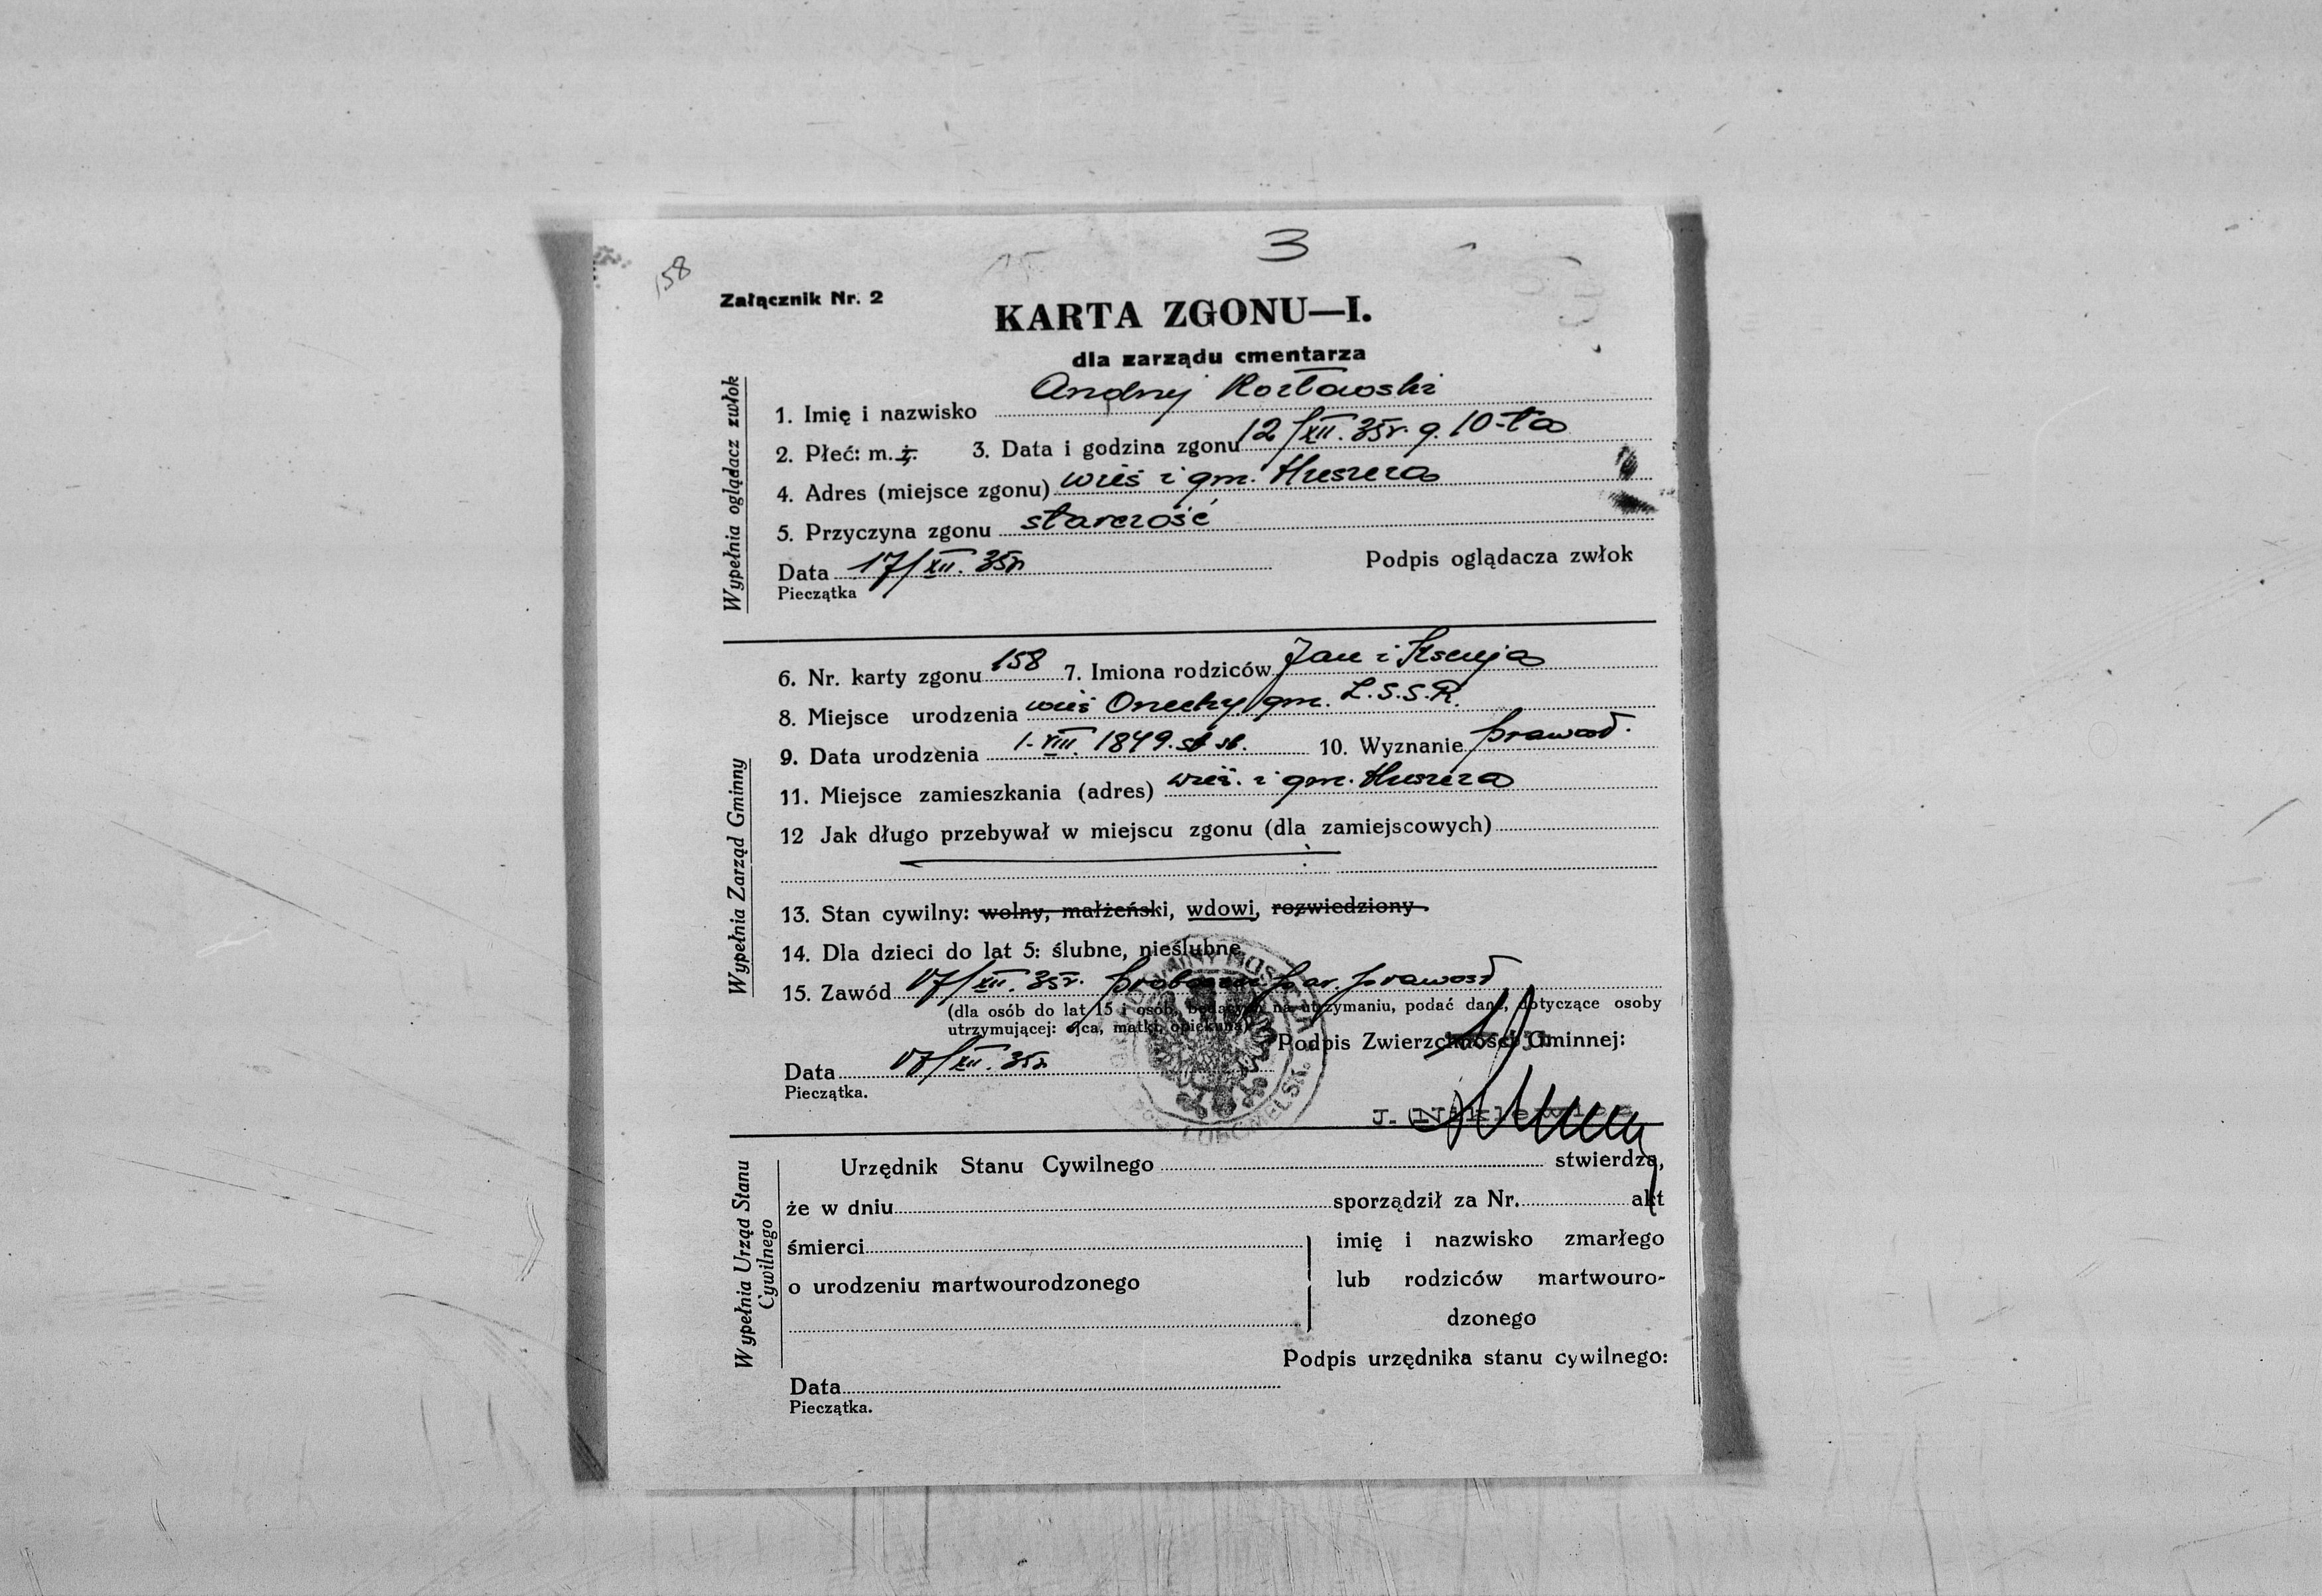 3
158
Załącznik Nr. 2
KARTA ZGONU—I.
dla zarządu cmentarza
Wypełnia oglądacz zwłok
1. Imię i nazwisko Andrzej Kozłowski
2. Płeć: m. ż. 3. Data i godzina zgonu 12/XII. 35r. g. 10-ta
4. Adres (miejsce zgonu) wieś i gm.
5. Przyczyna zgonu starczość
Data 17/XII. 35r. Podpis oglądacza zwłok
Pieczątka
Wypełnia Zarząd Gminny
6. Nr. karty zgonu 158 7. Imiona rodziców Jan i Ksenja
8. Miejsce urodzenia wieś gm. Z.S.S.R.
9. Data urodzenia 1-VIII. 1849. st st. 10. Wyznanie prawosł.
11. Miejsce zamieszkania (adres) wieś. i gm.
12 Jak długo przebywał w miejscu zgonu (dla zamiejscowych)
13. Stan cywilny: wolny, małżeński, wdowi, rozwiedziony
14. Dla dzieci do lat 5: ślubne, nieślubne
15. Zawód 17/XII. 35r. par. prawosł
(dla osób do lat 15 i osób, będących na utrzymaniu, podać dane, dotyczące osoby
utrzymującej: ojca, matki, opiekuna)
Podpis Zwierzchności Gminnej:
Data 17/XII. 35r.
Pieczątka.
J.
Wypełnia Urząd Stanu Cywilnego
Urzędnik Stanu Cywilnego stwierdza,
że w dniu sporządził za Nr. akt
śmierci imię i nazwisko zmarłego
o urodzeniu martwourodzonego lub rodziców martwouro-
dzonego
Podpis urzędnika stanu cywilnego:
Data
Pieczątka.